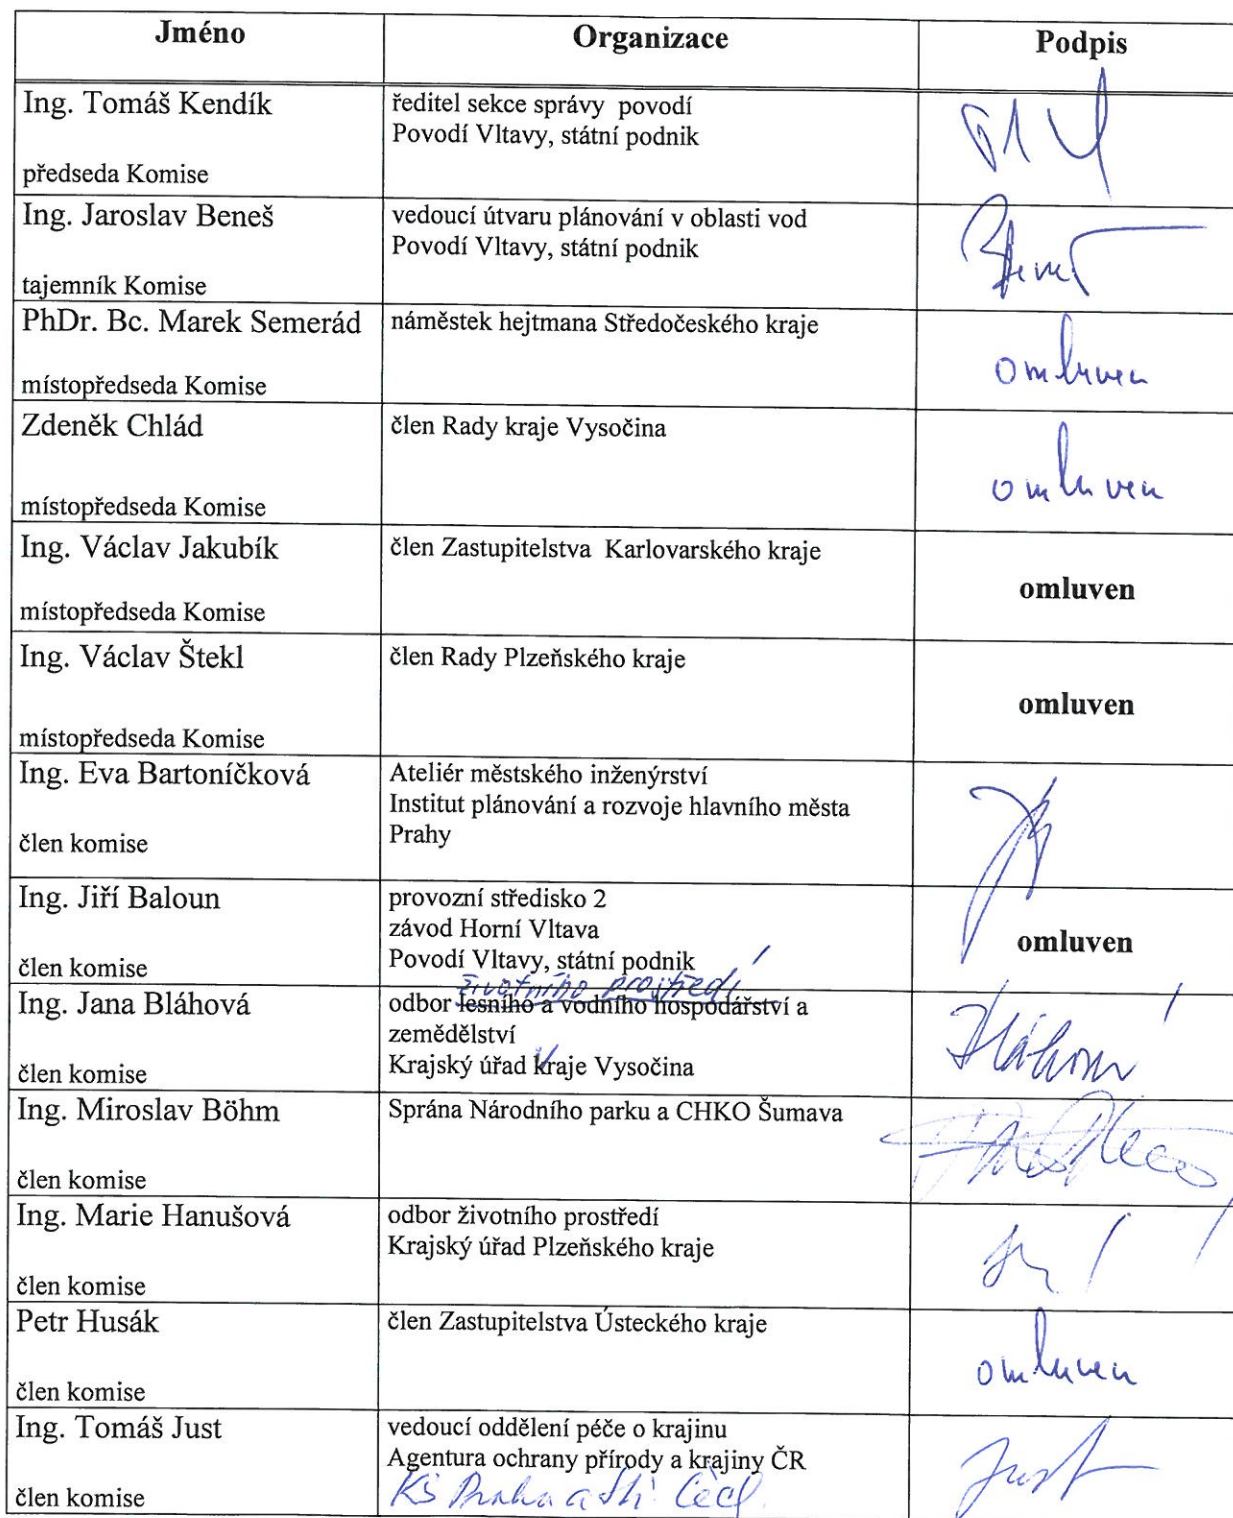 Jméno
Organizace
Podpis
Ing. Tomáš Kendík
předseda Komise
ředitel sekce správy povodí
Povodí Vltavy, státní podnik
Ing. Jaroslav Beneš
tajemník Komise
vedoucí útvaru plánování v oblasti vod
Povodí Vltavy, státní podnik
PhDr. Bc. Marek Semerád
místopředseda Komise
náměstek hejtmana Středočeského kraje
omluven
Zdeněk Chlád
místopředseda Komise
člen Rady kraje Vysočina
omluven
Ing. Václav Jakubík
místopředseda Komise
člen Zastupitelstva Karlovarského kraje
omluven
Ing. Václav Štekl
místopředseda Komise
člen Rady Plzeňského kraje
omluven
Ing. Eva Bartoníčková
člen komise
Ateliér městského inženýrství
Institut plánování a rozvoje hlavního města
Prahy
Ing. Jiří Baloun
člen komise
provozní středisko 2
závod Horní Vltava
Povodí Vltavy, státní podnik
omluven
Ing. Jana Bláhová
člen komise
životního prostředí
odbor lesního a vodního hospodářství a
zemědělství
Krajský úřad kraje Vysočina
Bláhová
Ing. Miroslav Böhm
člen komise
Sprána Národního parku a CHKO Šumava
Ing. Marie Hanušová
člen komise
odbor životního prostředí
Krajský úřad Plzeňského kraje
Petr Husák
člen komise
člen Zastupitelstva Ústeckého kraje
omluven
Ing. Tomáš Just
člen komise
vedoucí oddělení péče o krajinu
Agentura ochrany přírody a krajiny ČR
Praha a Stř. Čechy
Just